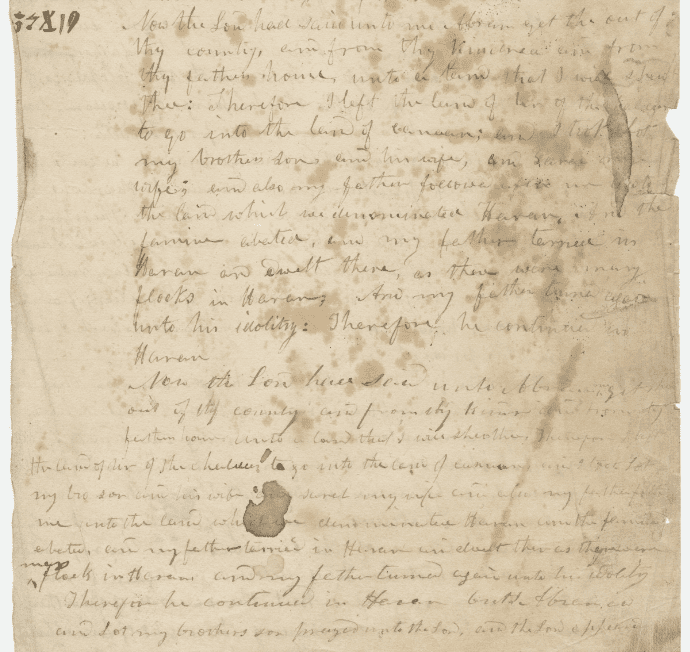 Now the Lord had said unto me Abram get the out of
thy county, and from thy kindred and from
thy father house, unto a land that I will
thee: Therefore I left the land of Ur of the
to go into the land of canaan; and I took Lot
my brothers son, and his wife, and Sarai
wife; and also my father followed me
the land which we denominated Haran, and the
famine abated, and my father terried in
Haran and dwelt there, as there were many
flocks in Haran; And my father turned again
unto his idolitry: Therefore he continued in
Haran
Now the Lord had said unto Abram get
out of thy county and from thy kindred and from thy
father house unto a land that I will Therefore I left
the land of Ur of the chaldees to go into the land of canaan and I took Lot
my bro son and his wife and Sarai my wife and also my father
me into the land which we denominated Haran and the famine
abated, and my father terried in Haran and dwelt ther as there were
many
flock in Haran and my father turned again unto his idolitry
Therefor he continued in Haran but I Abram
and Lot my brothers son prayed unto the Lord, and the Lord appeard